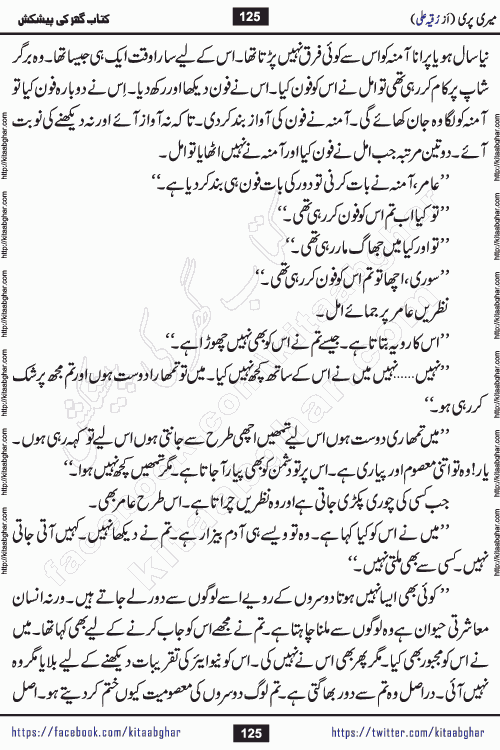 میری پری (از رُقیہ علی)
125
کتاب گھر کی پیشکش
نیا سال ہو یا پرانا آمنہ کو اس سے کوئی فرق نہیں پڑتا تھا۔ اس کے لیے سارا وقت ایک ہی جیسا تھا۔ وہ برگر
شاپ پر کام کر رہی تھی تو امل نے اس کو فون کیا۔ اس نے فون دیکھا اور رکھ دیا۔ اِس نے دوبارہ فون کیا تو
آمنہ کو لگا وہ جان کھائے گی۔ آمنہ نے فون کی آواز بند کر دی۔ تاکہ نہ آواز آئے اور نہ دیکھنے کی نوبت
آئے۔ دو تین مرتبہ جب امل نے فون کیا اور آمنہ نے نہیں اٹھایا تو امل۔
’’عامر، آمنہ نے بات کرنی تو دور کی بات فون ہی بند کر دیا ہے۔‘‘
’’تو کیا اب تم اس کو فون کر رہی تھی۔‘‘
’’تو اور کیا میں جھاگ مار رہی تھی۔‘‘
’’سوری، اچھا تو تم اس کو فون کر رہی تھی۔‘‘
نظریں عامر پر جمائے امل۔
’’اس کا رویہ بتاتا ہے۔ جیسے تم نے اس کو بھی نہیں چھوڑا ہے۔‘‘
’’نہیں......نہیں میں نے اس کے ساتھ کچھ نہیں کیا۔ میں تو تمھارا دوست ہوں اور تم مجھ پر شک
کر رہی ہو۔‘‘
’’میں تمھاری دوست ہوں اس لیے تمھیں اچھی طرح سے جانتی ہوں اس لیے تو کہہ رہی ہوں۔
یار! وہ تو اتنی معصوم اور پیاری ہے۔ اس پر تو دشمن کو بھی پیار آ جاتا ہے۔ مگر تمھیں کچھ نہیں ہوا۔‘‘
جب کسی کی چوری پکڑی جاتی ہے اور وہ نظریں چراتا ہے۔ اس طرح عامر بھی۔
’’میں نے اس کو کیا کہا ہے۔ وہ تو ویسے ہی آدم بیزار ہے۔ تم نے دیکھا نہیں۔ کہیں آتی جاتی
نہیں۔ کسی سے بھی ملتی نہیں۔‘‘
’’کوئی بھی ایسا نہیں ہوتا دوسروں کے رویے اسے لوگوں سے دور لے جاتے ہیں۔ ورنہ انسان
معاشرتی حیوان ہے وہ لوگوں سے ملنا چاہتا ہے۔ تم نے مجھے اس کو جاب کرنے کے لیے بھی کہا تھا۔ میں
نے اس کو مجبور بھی کیا۔ مگر پھر بھی اس نے نہیں کی۔ اس کو نیو ائیر کی تقریبات دیکھنے کے لیے بلایا مگر وہ
نہیں آئی۔ دراصل وہ تم سے دور بھاگتی ہے۔ تم لوگ دوسروں کی معصومیت کیوں ختم کر دیتے ہو۔ اصل
http://kitaabghar.com
http://kitaabghar.com
http://kitaabghar.com
http://kitaabghar.com
کتاب گھر کی پیشکش
kitaabghar.com
facebook.com/kitaabghar
https://facebook.com/kitaabghar
125
https://twitter.com/kitaabghar